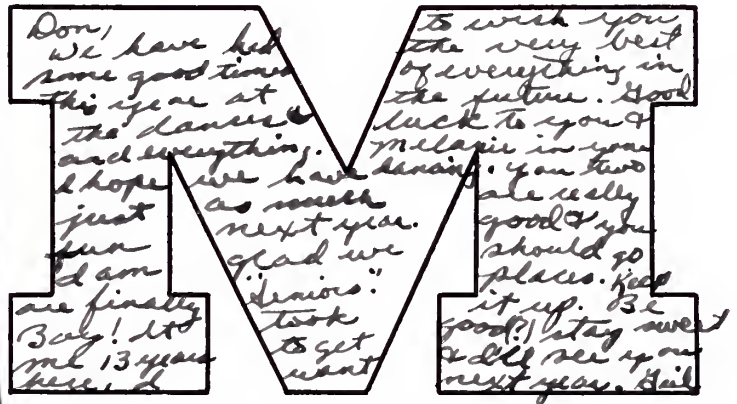 Don,
We have had
some good times
this year at
the dances
and everything.
I hope we have
just as much
fun next year.
I am glad we
are finally "Seniors."
Boy! It took
me 13 years to get
here. I want
to wish you
the very best
of everything in
the future. Good
luck to you &
Melanie in your
dancing. You two
are really
good & you
should go
places. Keep
it up. Be
good?! stay sweet
& I'll see you
next year. Gail